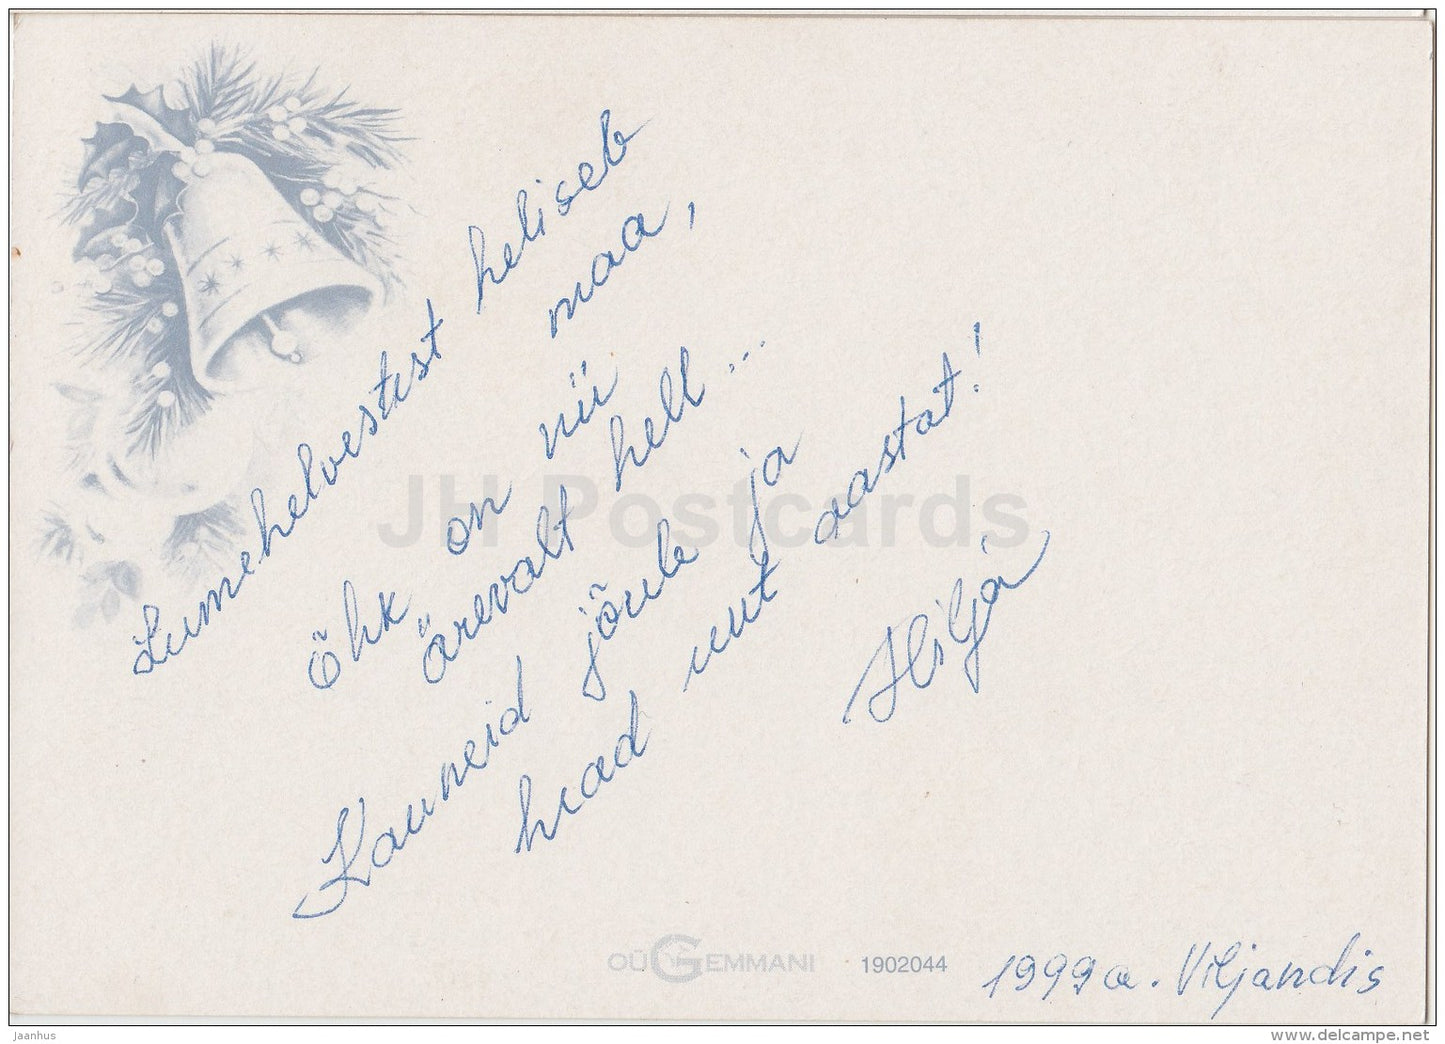 Lumehelvestest heliseb
maa,
õhk on nii
ärevalt hell...
Kauneid jõule ja
head uut aastat!
Hilja
JH Postcards
OÜ GEMMANI 1902044
1999 a. Viljandis
jaanhus
www.delcampe.net